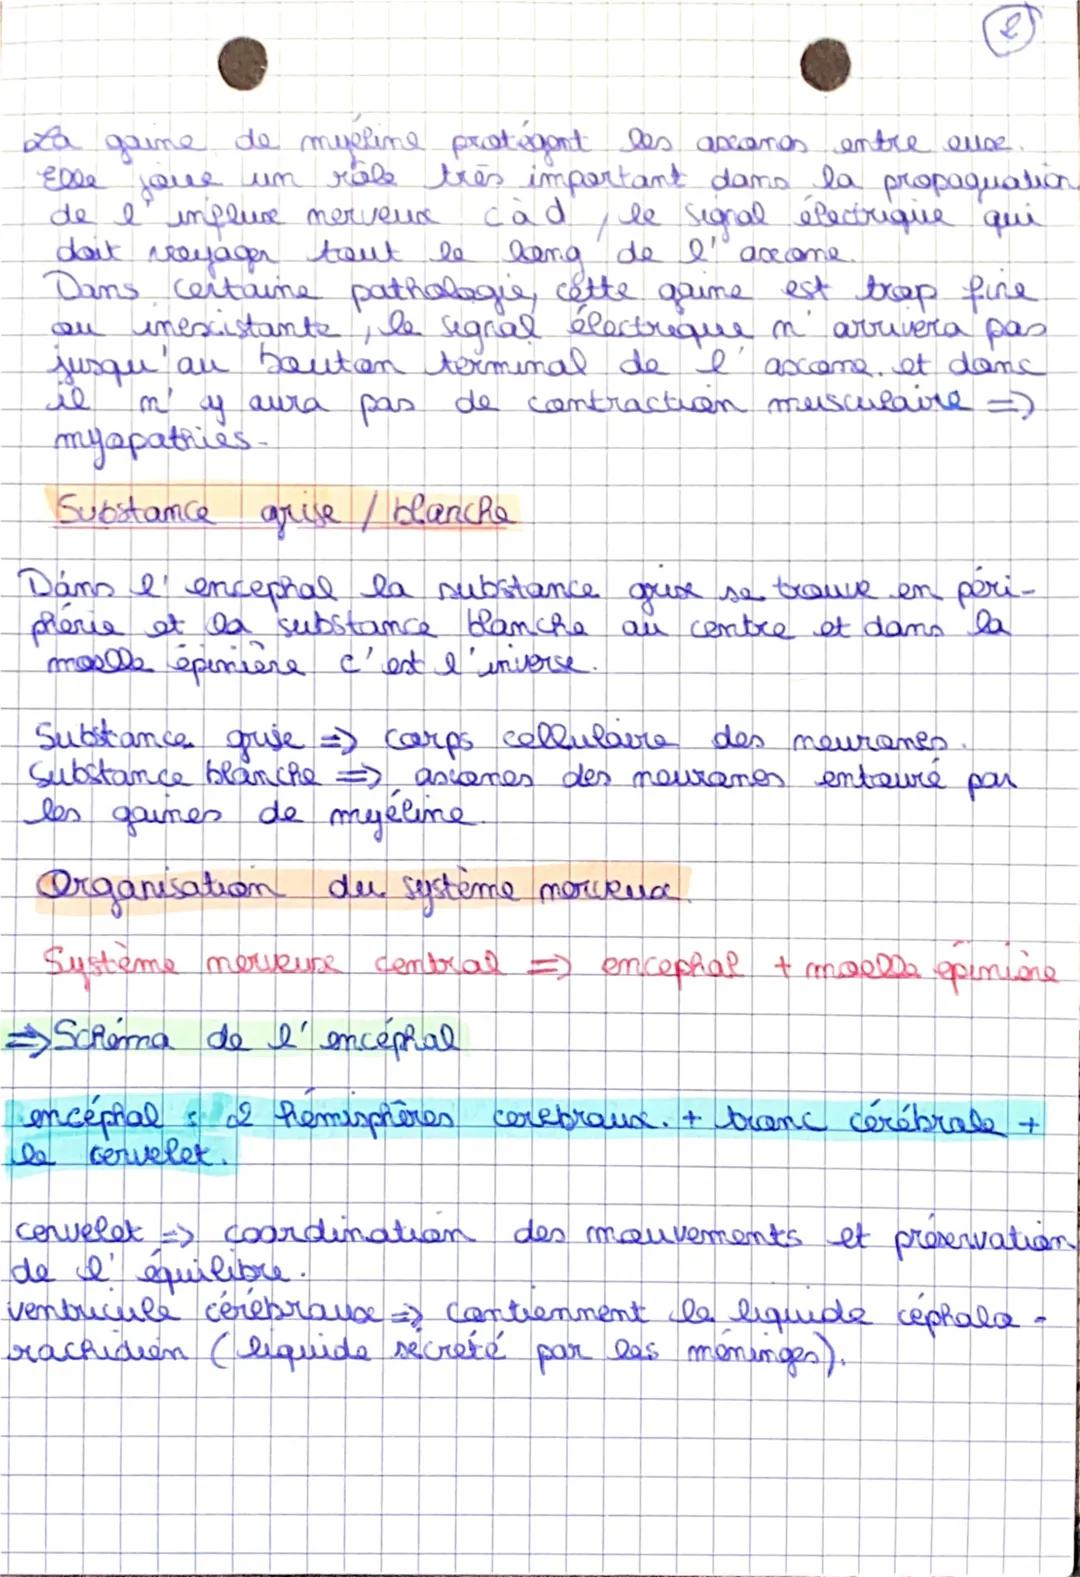 2
La gaine de myéline protégent les axones entre eux.
Elle joue un rôle très important dans la propaguation
de l'influx nerveux càd, le signal électrique qui
doit voyager tout le long de l'axone.
Dans certaine pathologie, cette gaine est trop fine
ou inexistante, le signal électrique n'arrivera pas
jusqu'au bouton terminal de l'axone. et donc
il n'y aura pas de contraction musculaire =>
myopathies.
Substance grise / blanche
Dans l'encephal la substance grise se trouve en péri-
phérie et la substance blanche au centre et dans la
moelle épinière c'est l'inverse.
Substance grise => corps cellulaire des neurones.
Substance blanche => axones des neurones entouré par
les gaines de myéline.
Organisation du système nerveux.
Système nerveux central => encephal + moelle épinière
=> Schéma de l'encéphal
encéphal : 2 hémisphères cerebraux. + tronc cérébrale +
le cervelet.
cervelet => coordination des mouvements et préservation
de l'équilibre.
ventricule cérébraux => contiennent le liquide céphalo-
rachidien (liquide sécreté par les méninges).